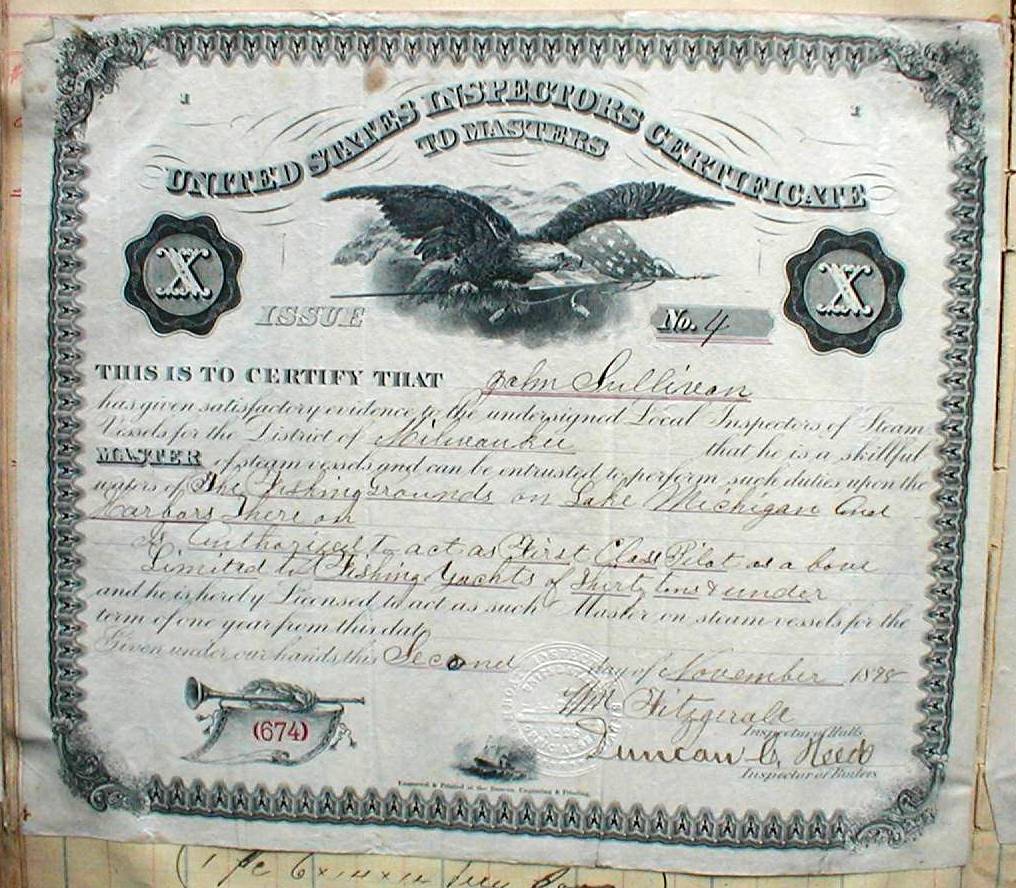 UNITED STATES INSPECTORS CERTIFICATE
TO MASTERS
X
X
ISSUE
No. 4
THIS IS TO CERTIFY THAT John Sullivan
has given satisfactory evidence to the undersigned Local Inspectors of Steam
Vessels for the District of Milwaukee that he is a skillful
MASTER of steam vessels and can be entrusted to perform such duties upon the
waters of The Fishing Grounds on Lake Michigan and
Harbors there on
is Authorized to act as First Class Pilot as a bove
Limited to Fishing Yachts of thirty tons & under
and he is hereby Licensed to act as such Master on steam vessels for the
term of one year from this date
Given under our hands this Second day of November 1898
Wm Fitzgerald
Inspector of Hulls
Duncan C. Reed
Inspector of Boilers
(674)
Engraved & Printed at the Bureau, Engraving & Printing.